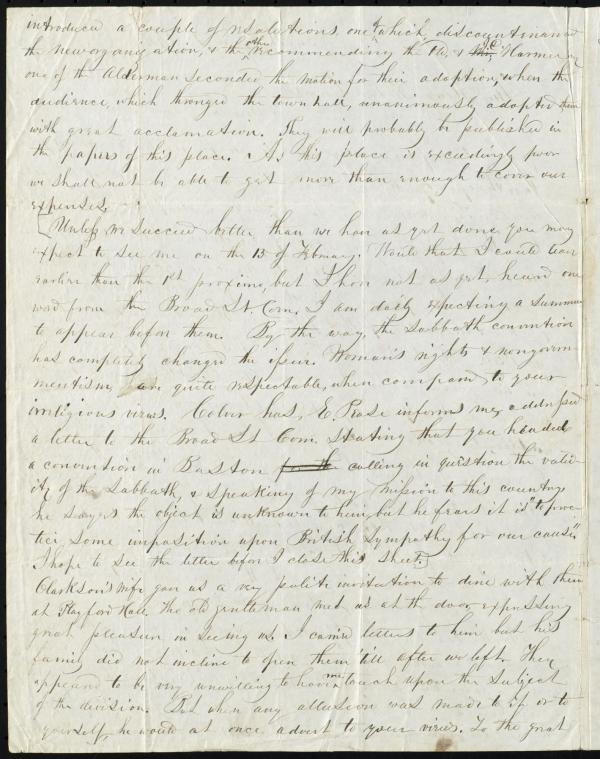 introduced a couple of resolutions one of which discountenanced
the new organization, & the other recommending the old, & J. C. Harmer
one of the Alderman seconded the motion for their adoption, when the
audience, which thronged the town hall, unanimously adopted them
with great acclamation. They will probably be published in
the papers of this place. As this place is exceedingly poor
we shall not be able to get more than enough to cover our
expenses.
Unless we succeed better than we have as yet done you may
expect to see me on the 15 of February. Would that I could leave
earlier than the 1st proximo, but I have not as yet, heard one
word from the Broad St. Com. I am daily expecting a summons
to appear before them. By the way, the Sabbath convention
has completely changed the issue. Woman's rights & nongovern-
mentism are quite respectable, when compared to your
irreligious views. Colver has, E. Pease informs me, addressed
a letter to the Broad St Com. stating that you headed
a convention in Boston calling in question the valid-
ity of the Sabbath, & speaking of my mission to this country
he says the object is unknown to him, but he fears it is "to prac-
tice some imposition upon British Sympathy for our cause".
I hope to see the letter before I close this sheet.
Clarkson's wife gave us a very polite invitation to dine with them
at Playford Hall. The old gentleman met us at the door, expressing
great pleasure in seeing us. I carried letters to him but his
family did not incline to open them 'till after we left. They
appeared to be very unwilling to have me touch upon the subject
of the division. But when any allusion was made to it or to
yourself, he would at once advert to your views. To the great